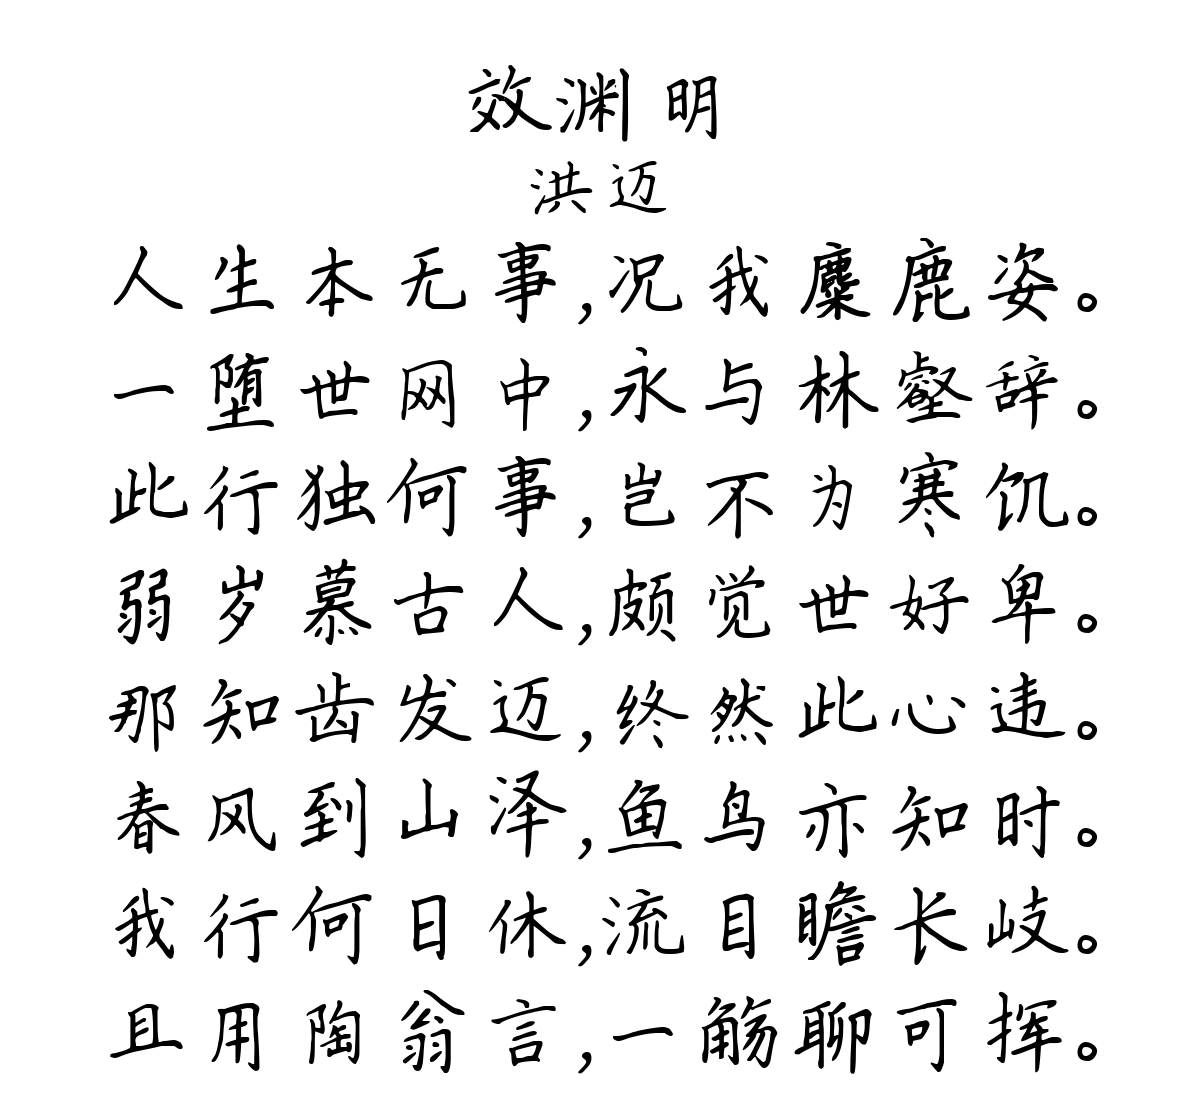 效渊明
洪迈
人生本无事,况我麋鹿姿。
一堕世网中,永与林壑辞。
此行独何事,岂不为寒饥。
弱岁慕古人,颇觉世好卑。
那知齿发迈,终然此心违。
春风到山泽,鱼鸟亦知时。
我行何日休,流目瞻长岐。
且用陶翁言,一觞聊可挥。